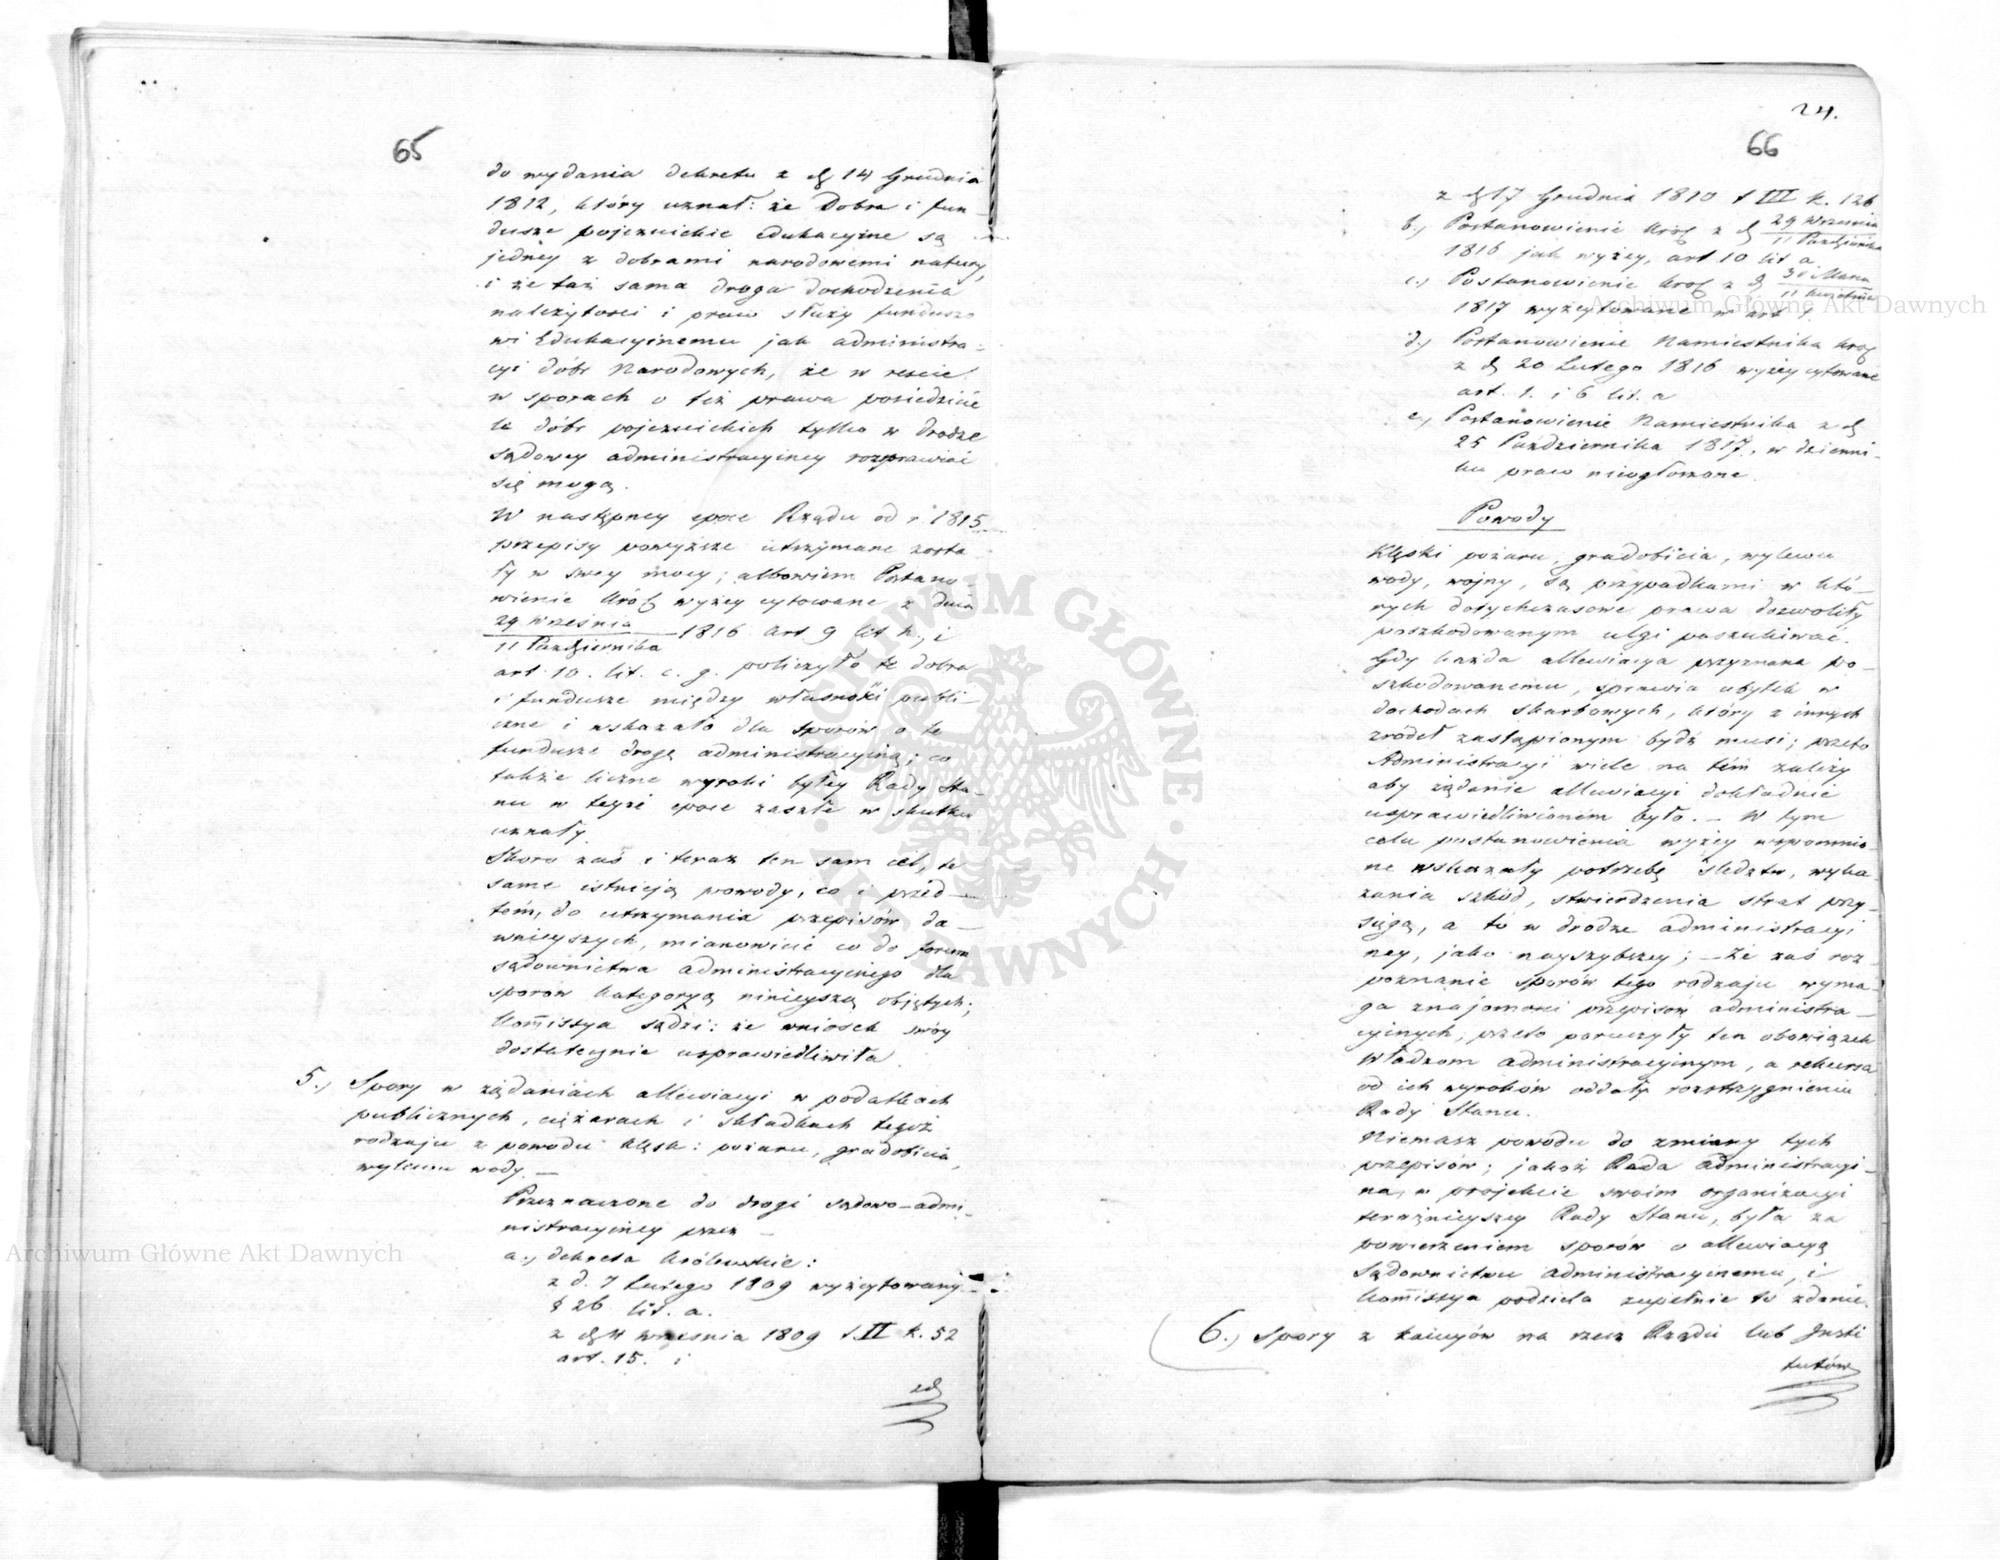 65
do wydania dekretu z d. 14 Grudnia
1812, który uznał: że Dobra i fun-
dusze pojezuickie edukacyjne są
jedney z dobrami narodowemi natury,
i że taż sama droga dochodzenia
należytości i praw służy funduszo
wi Edukacyinemu jak administra-
cyi dóbr Narodowych, że w reście
w sporach o też prawa posiedziciele
dóbr pojezuickich tylko w drodze
sądowey administracyiney rozprawiać
się mogą.
W następney epoce Rządu od r. 1815
przepisy powyższe utrzymane zosta
ły w swey mocy; albowiem Postano-
wienie Król. wyżey cytowane z dnia
29 Września
11 Października
1816 art 9 lit h, i
art. 10. lit. c. g. policzyło te dobra
i fundusze między własności publi-
czne i wskazało dla sporów o te
fundusze drogę administracyiną; co
także liczne wyroki byłey Rady Sta-
nu w teyże epoce zaszłe w skutku
uznały.
Skoro zaś i teraz ten sam cel, te
same istnieją powody, co i przed-
tem, do utrzymania przepisów da-
wnieyszych, mianowicie co do forum
sądownictwa administracyinego dla
sporów kategoryą ninieyszą objętych;
Kommissya sądzi: że wniosek swóy
dostatecznie usprawiedliwiła.
5.) Spory w żądaniach allewiacyi w podatkach
publicznych, ciężarach i składkach tegoż
rodzaju z powodu klęsk: pożaru, gradobicia,
wylewu wody. —
Przeznaczone do drogi sądowo-admi-
nistracyiney przez —
a.) dekreta Królewskie:
z d. 7 Lutego 1809 wyżcytowany
§ 26 lit. a.
z d. 4 września 1809 t. II k. 52
art. 15. i
z d.
24.
66
z d. 17 Grudnia 1810 t III k. 126
b.) Postanowienie Król. z d. 29 Września
11 Października
1816 jak wyżey, art 10 lit a
c.) Postanowienie Król. z d. 30 Marca
11 Kwietnia
1817 wyżcytowane w art 1.
d.) Postanowienie Namiestnika Król.
z d. 20 Lutego 1816 wyżey cytowane
art. 1. i 6 lit. a
e.) Postanowienie Namiestnika z d.
25 Października 1817, w dzienni-
ku praw nieogłoszone.
Powody
Klęski pożaru, gradobicia, wylewu
wody, wojny, są przypadkami w któ-
rych dotychczasowe prawa dozwoliły
poszkodowanym ulgi poszukiwać.
Gdy każda allewiacya przyznana po-
szkodowanemu, sprawia ubytek w
dochodach skarbowych, który z innych
źródeł zastąpionym bydź musi; przeto
Administracyi wiele na tem zależy
aby żądanie allewiacyi dokładnie
usprawiedliwionem było. — W tym
celu postanowienia wyżey wspomnio-
ne wskazały potrzebę śledztw, wyka-
zania szkód, stwierdzenia strat przy-
sięgą, a to w drodze administracyi
ney, jako nayszybszey; — Że zaś roz-
poznanie sporów tego rodzaju wyma-
ga znajomości przepisów administra-
cyinych, przeto poruczyły ten obowiązek
Władzom administracyinym, a rekursa
od ich wyroków oddały rozstrzygnieniu
Rady Stanu.
Niemasz powodu do zmiany tych
przepisów; jakoż Rada Administracyi-
na, w projekcie swoim organizacyi
teraźnieyszey Rady Stanu, była za
powierzeniem sporów o allewiacyą
Sądownictwu administracyinemu, i
Kommissya podziela zupełnie to zdanie.
6.) Spory z kaucyów na rzecz Rządu lub Insti
tutów
Archiwum Główne Akt Dawnych
Archiwum Główne Akt Dawnych
ARCHIWUM GŁÓWNE AKT DAWNYCH